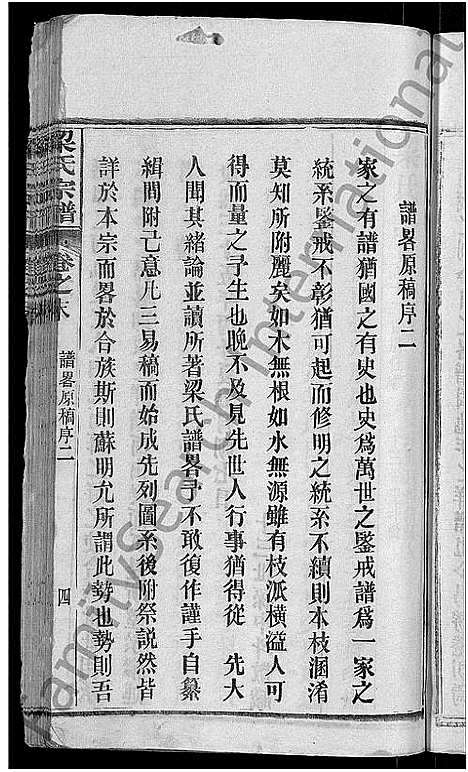 譜畧原稿序二
家之有譜猶國之有史也史爲萬世之鑒戒譜爲一家之
統系鑒戒不彰猶可起而修明之統系不續則本枝溷淆
莫知所附麗矣如木無根如水無源雖有枝派橫溢人可
得而量之予生也晚不及見先世人行事猶得從 先大
人聞其緒論並讀所著梁氏譜畧予不敢復作謹手自纂
緝間附己意凡三易稿而始成先列圖系後附祭説然皆
詳於本宗而畧於合族斯則蘇明允所謂此勢也勢則吾
梁氏宗譜 卷之末 譜畧原稿序二 四
FamilySearch International